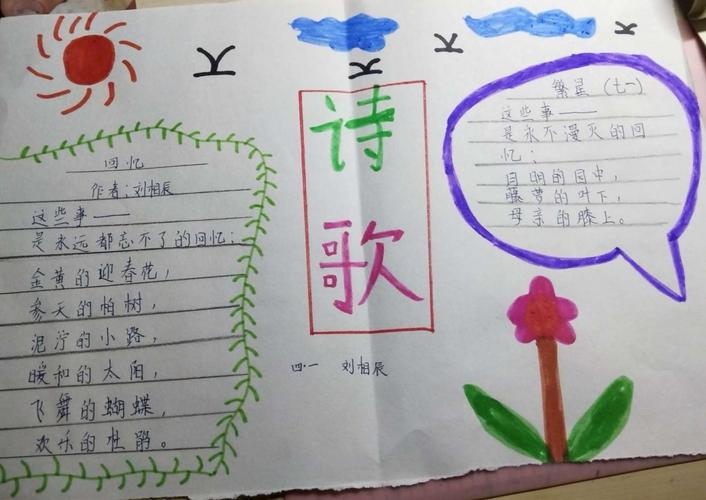 诗
歌
四·一 刘相辰
回忆
作者：刘相辰
这些事——
是永远都忘不了的回忆：
金黄的迎春花，
参天的柏树，
泥泞的小路，
暖和的太阳，
飞舞的蝴蝶，
欢乐的
繁星（七一）
这些事——
是永不漫灭的回
忆：
月明的园中，
藤萝的叶下，
母亲的膝上。